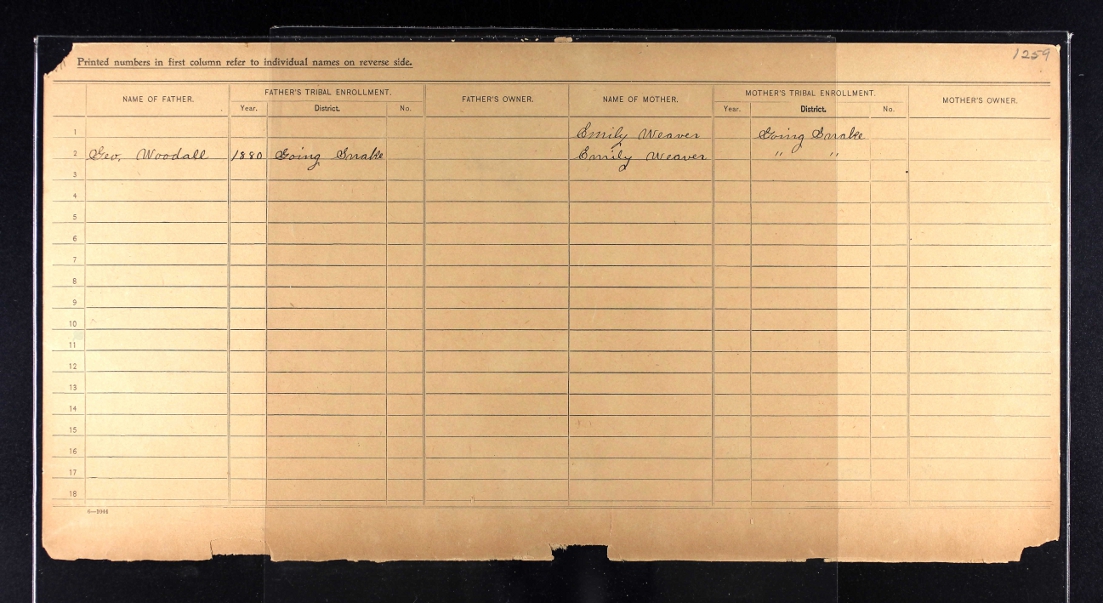 1259
Printed numbers in first column refer to individual names on reverse side.
NAME OF FATHER. FATHER'S TRIBAL ENROLLMENT. FATHER'S OWNER. NAME OF MOTHER. MOTHER'S TRIBAL ENROLLMENT. MOTHER'S OWNER.
Year. District. No. Year. District. No.
1 Emily Weaver Going Snake
2 Geo. Woodall 1880 Going Snake Emily Weaver " "
3
4
5
6
7
8
9
10
11
12
13
14
15
16
17
18